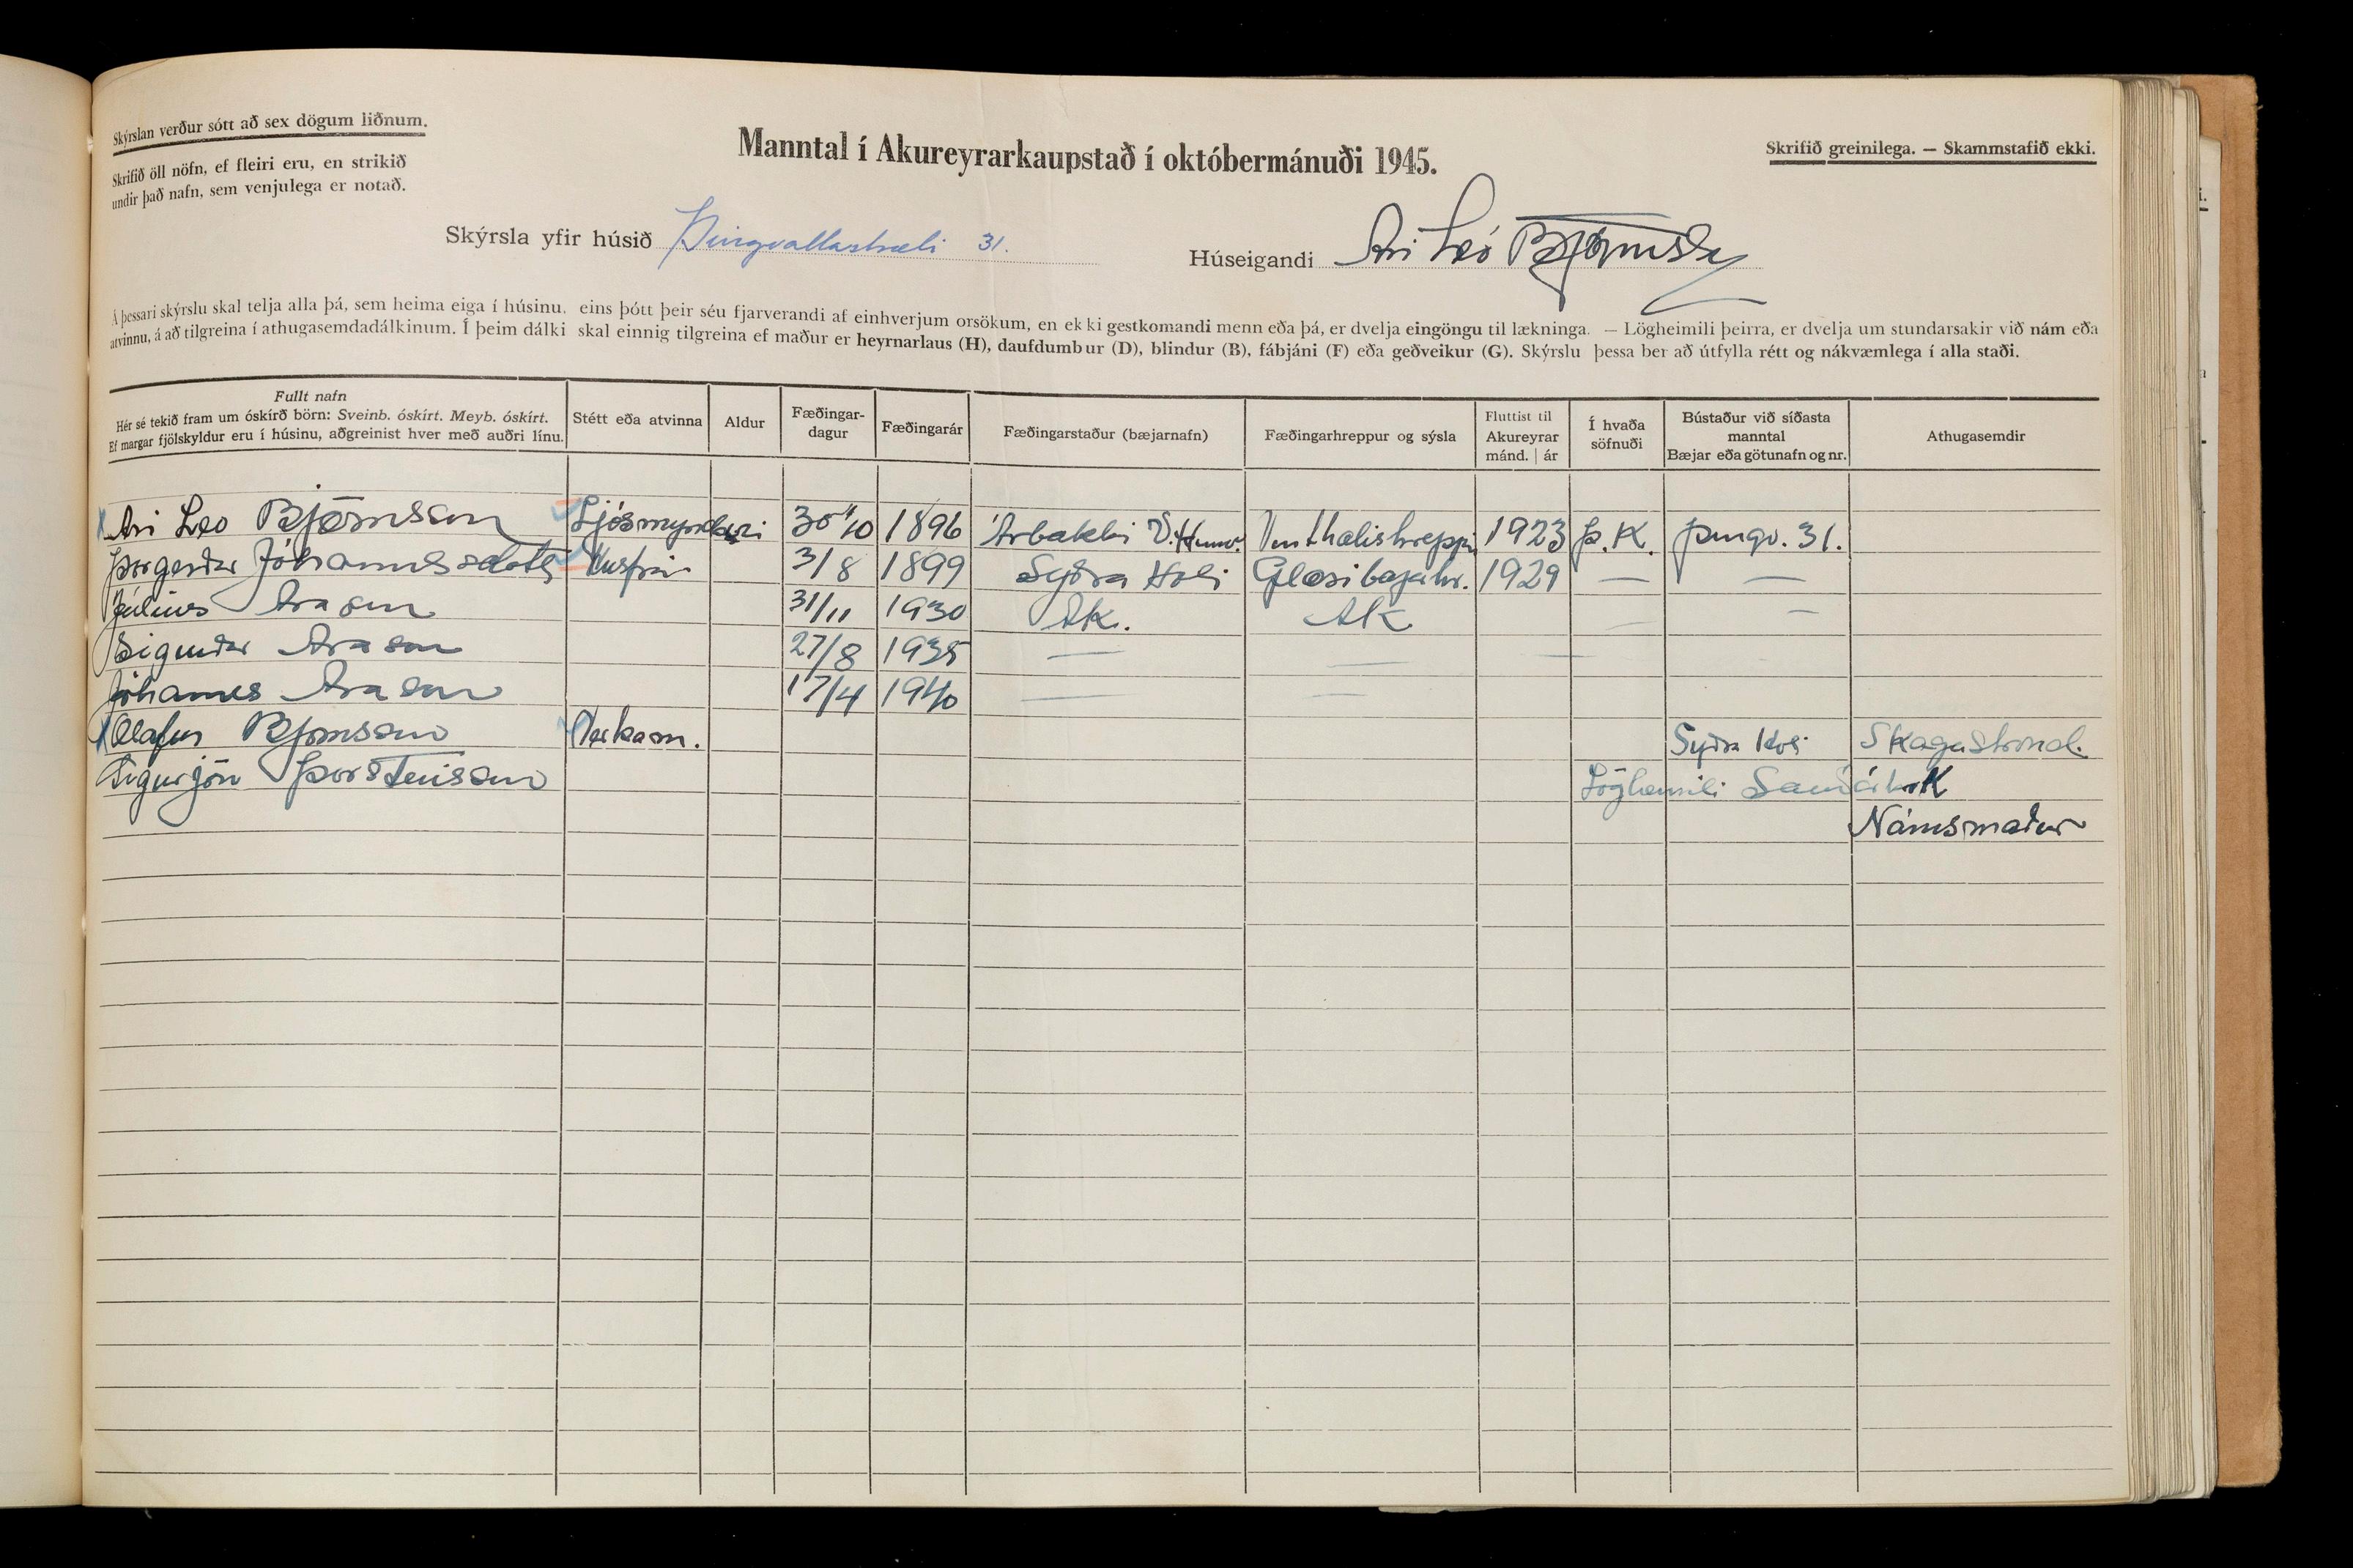 Skýrslan verður sótt að sex dögum liðnum.
Skrifið öll nöfn, ef fleiri eru, en strikið
undir það nafn, sem venjulega er notað.
Manntal í Akureyrarkaupstað í októbermánuði 1945.
Skrifið greinilega. — Skammstafið ekki.
Skýrsla yfir húsið Þingvallastræti 31.
Húseigandi Ari Leó Björnsson
Á þessari skýrslu skal telja alla þá, sem heima eiga í húsinu, eins þótt þeir séu fjarverandi af einhverjum orsökum, en ekki gestkomandi menn eða þá, er dvelja eingöngu til lækninga. — Lögheimili þeirra, er dvelja um stundarsakir við nám eða
atvinnu, á að tilgreina í athugasemdadálkinum. Í þeim dálki skal einnig tilgreina ef maður er heyrnarlaus (H), daufdumbur (D), blindur (B), fábjáni (F) eða geðveikur (G). Skýrslu þessa ber að útfylla rétt og nákvæmlega í alla staði.
Fullt nafn
Hér sé tekið fram um óskírð börn: Sveinb. óskírt. Meyb. óskírt.
Ef margar fjölskyldur eru í húsinu, aðgreinist hver með auðri línu.
Stétt eða atvinna
Aldur
Fæðingar-
dagur
Fæðingarár
Fæðingarstaður (bæjarnafn)
Fæðingarhreppur og sýsla
Fluttist til
Akureyrar
mánd. | ár
Í hvaða
söfnuði
Bústaður við síðasta
manntal
Bæjar eða götunafn og nr.
Athugasemdir
Ari Leo Björnsson Ljósmyndari 1896 Árbakki V. Hunv. 1923 Þ.K. Þingv. 31.
Þorgerður Jóhannesdottir Husfrú 3/8 1899 Syðra Holi Glæsibæjahr. 1929 — —
Július Arason 31/11 1930 Ak. AK — —
Sigurður Arason 27/8 1935 — — —
Jóhannes Arason 17/4 1940 — —
Olafur Bjornsson Verkam. Syðra Holi Skagastrond.
Sigurjón Þorsteinsson Lögheimili
Námsmaður